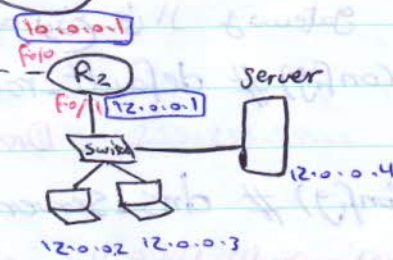 10.0.0.1
fo/0
R2
server
fo/1
12.0.0.1
switch
12.0.0.4
12.0.0.2 12.0.0.3